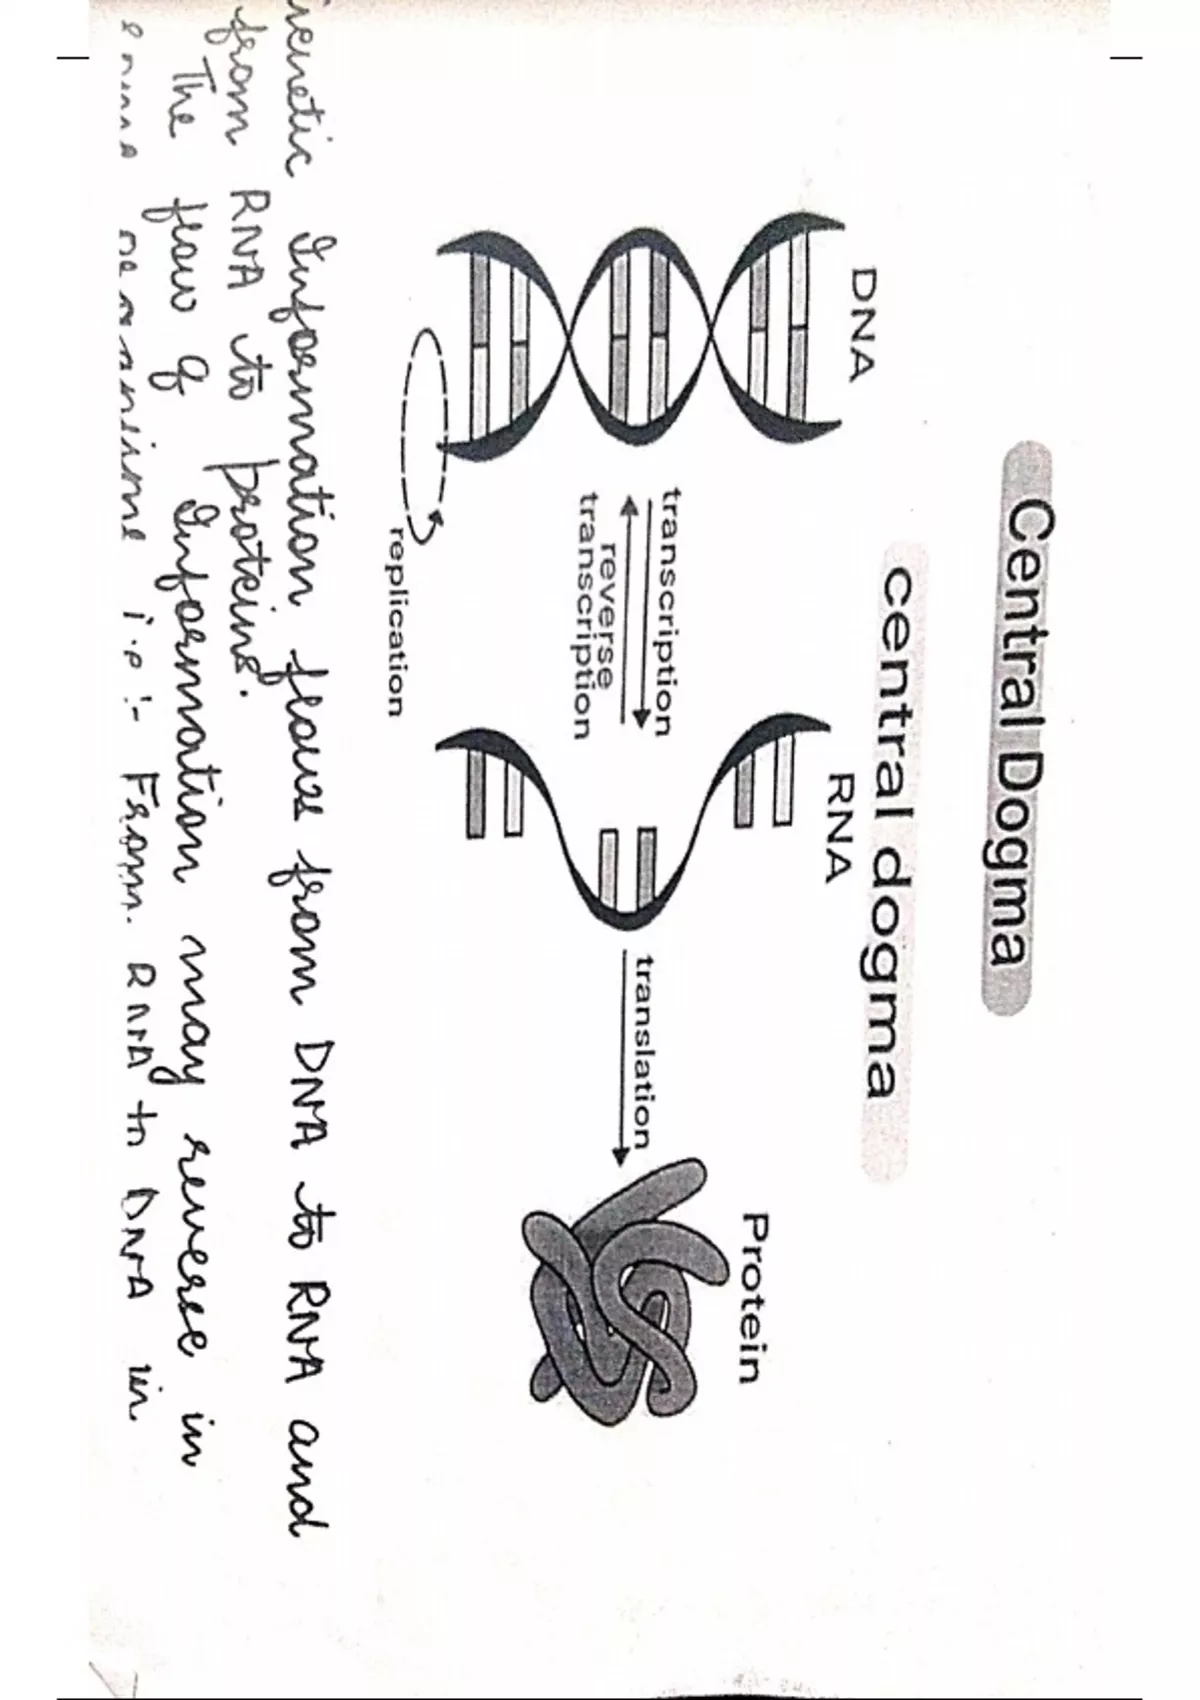 Central Dogma
central dogma
DNA
RNA
Protein
transcription
reverse
transcription
translation
replication
Information flows from DNA to RNA and
from RNA to proteins.
The flow of Information may reverse in
i.e :- From RNA to DNA in